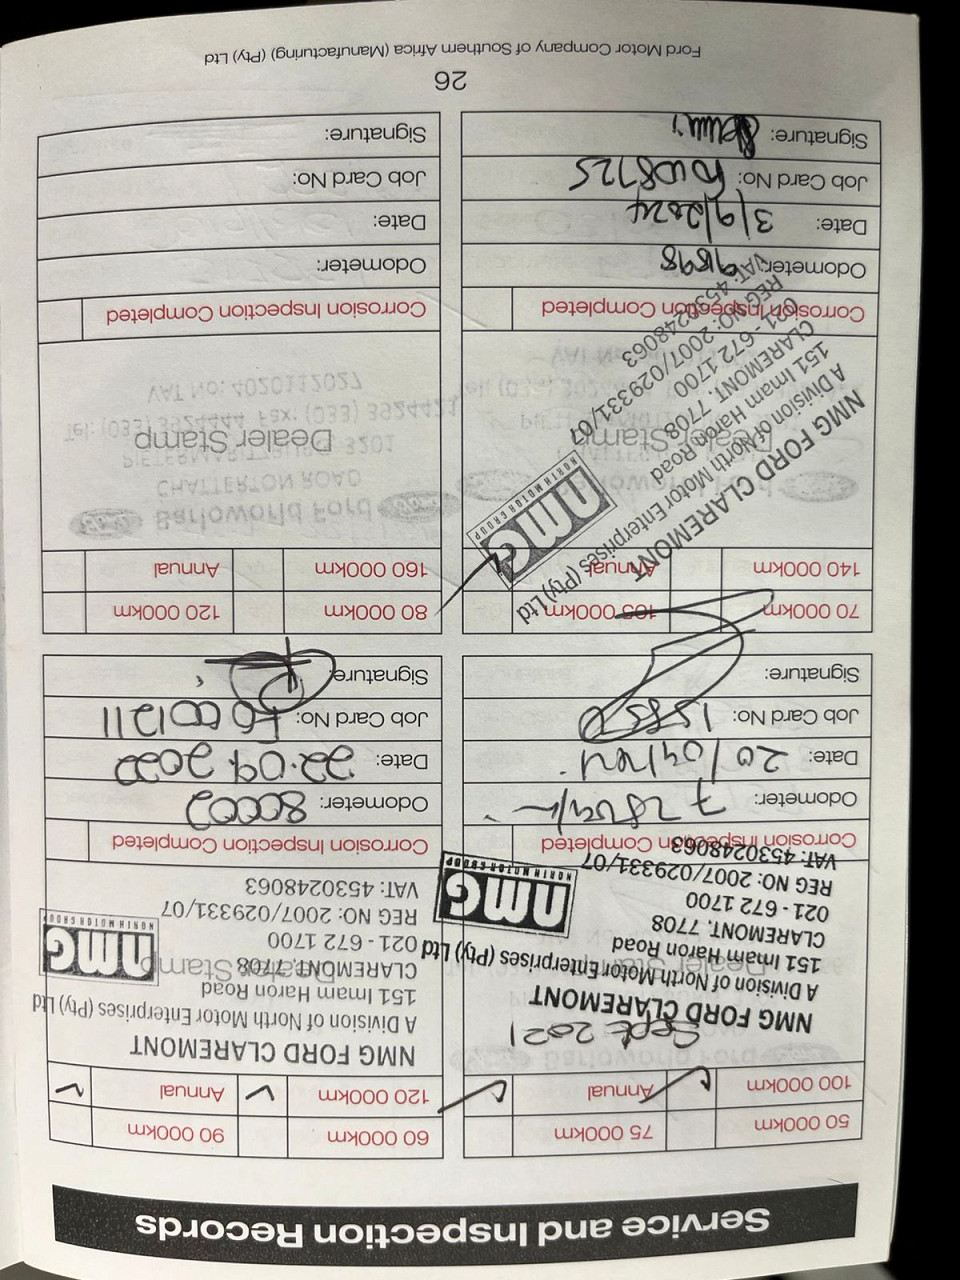 Service and Inspection Records
50 000km 75 000km
100 000km Annual
Sept 2021
NMG FORD CLAREMONT
A Division of North Motor Enterprises (Pty) Ltd
151 Imam Haron Road
CLAREMONT. 7708
021 - 672 1700
REG NO: 2007/029331/07
VAT: 4530248063
nmg
NORTH MOTOR GROUP
Dealer Stamp
Corrosion Inspection Completed
Odometer:
Date:
Job Card No:
Signature:
60 000km 90 000km
120 000km Annual
NMG FORD CLAREMONT
A Division of North Motor Enterprises (Pty) Ltd
151 Imam Haron Road
CLAREMONT. 7708
021 - 672 1700
REG NO: 2007/029331/07
VAT: 4530248063
nmg
NORTH MOTOR GROUP
Dealer Stamp
Corrosion Inspection Completed
Odometer: 80002
Date: 22.09.2022
Job Card No:
Signature:
70 000km 105 000km
140 000km Annual
NMG FORD CLAREMONT
A Division of North Motor Enterprises (Pty) Ltd
151 Imam Haron Road
CLAREMONT. 7708
021 - 672 1700
REG NO: 2007/029331/07
VAT: 4530248063
nmg
NORTH MOTOR GROUP
Dealer Stamp
Corrosion Inspection Completed
Odometer: 91898
Date: 3/9/2024
Job Card No:
Signature:
80 000km 120 000km
160 000km Annual
Dealer Stamp
Corrosion Inspection Completed
Odometer:
Date:
Job Card No:
Signature:
26
Ford Motor Company of Southern Africa (Manufacturing) (Pty) Ltd